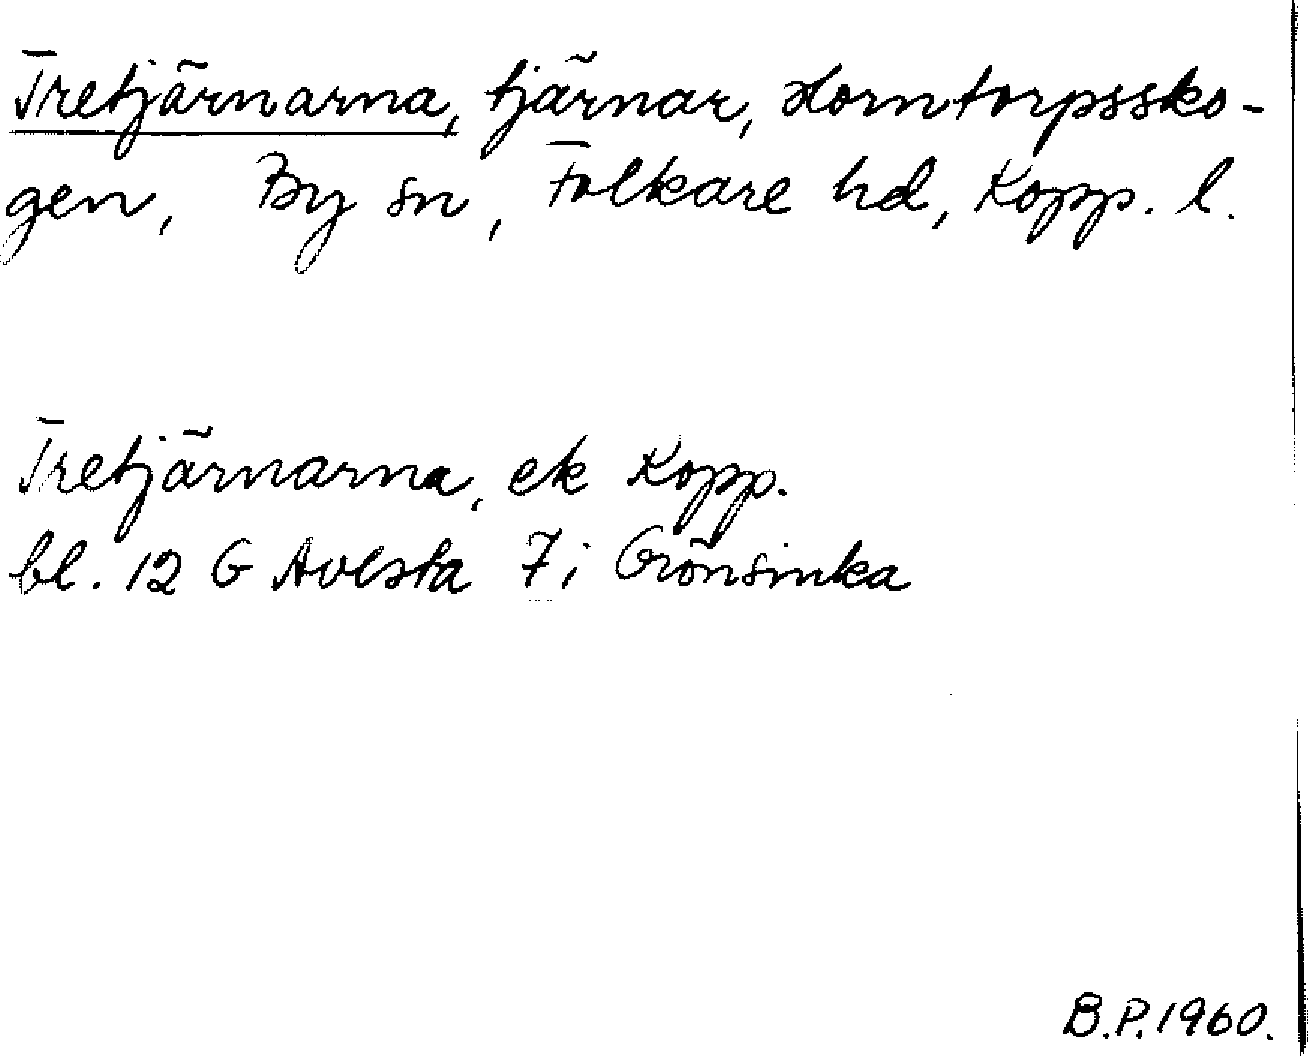 Tretjärnarna, tjärnar, Horntorpssko-
gen, By sn, Folkare hd, Kopp. l.
Tretjärnarna, ek Kopp.
bl. 12 G Avesta 7i Grönsinka
B.P. 1960.